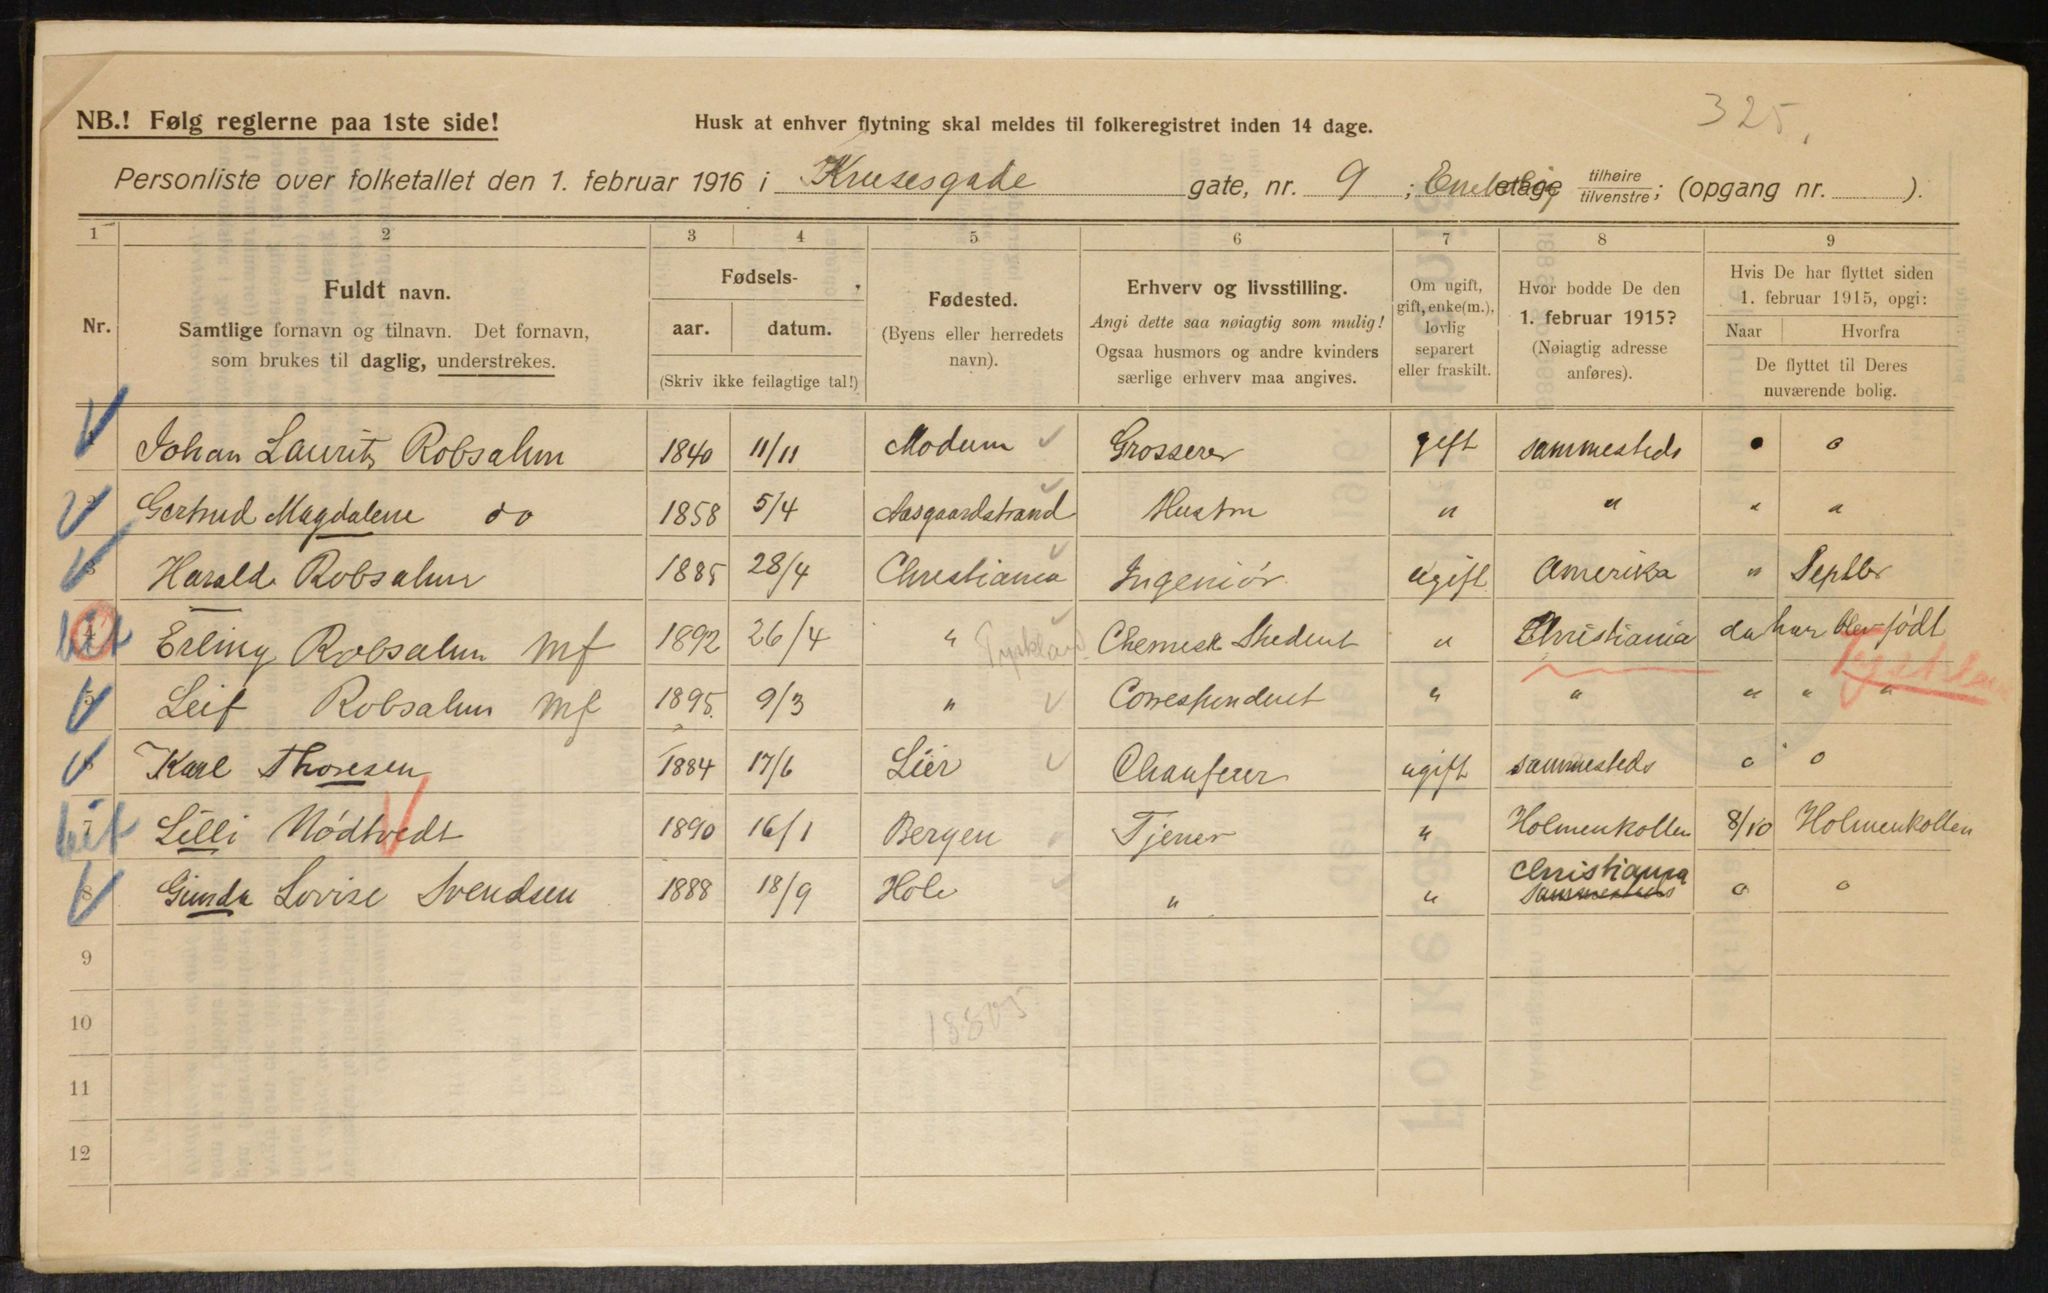 325.
NB.! Følg reglerne paa 1ste side!
Husk at enhver flytning skal meldes til folkeregistret inden 14 dage.
Personliste over folketallet den 1. februar 1916 i Krusesgade gate, nr. 9; etage tilhøire tilvenstre; (opgang nr. ).
1 2 3 4 5 6 7 8 9
Nr.
Fuldt navn.
Samtlige fornavn og tilnavn. Det fornavn,
som brukes til daglig, understrekes.
Fødsels-
aar. datum.
(Skriv ikke feilagtige tal!)
Fødested.
(Byens eller herredets
navn).
Erhverv og livsstilling.
Angi dette saa nøiagtig som mulig!
Ogsaa husmors og andre kvinders
særlige erhverv maa angives.
Om ugift,
gift, enke(m.),
lovlig
separert
eller fraskilt.
Hvor bodde De den
1. februar 1915?
(Nøiagtig adresse
anføres).
Hvis De har flyttet siden
1. februar 1915, opgi:
Naar Hvorfra
De flyttet til Deres
nuværende bolig.
Johan Laurits Robsahm 1840 11/11 Modum Grosserer gift sammesteds • o
Gertrud Magdalene do 1858 5/4 Aasgaardstrand Hustru " " " "
3 Harald Robsahm 1885 28/4 Christiania Ingeniör ugift Amerika " Septbr
4 Erling Robsahm Mf 1892 26/4 " Tyskland Chemisk Student " Christiania da har blev født
5 Leif Robsahm Mf 1895 9/3 " Correspondent " " " " "
Karl Thoresen 1884 17/6 Lier Chauferer ugift sammesteds o o
7 Lilli Nödtvedt 1890 16/1 Bergen Tjener " Holmenkollen 8/10 Holmenkollen
8 Gunda Lovise Svendsen 1888 18/9 Hole " " Christiania sammesteds o o
9
10
11
12